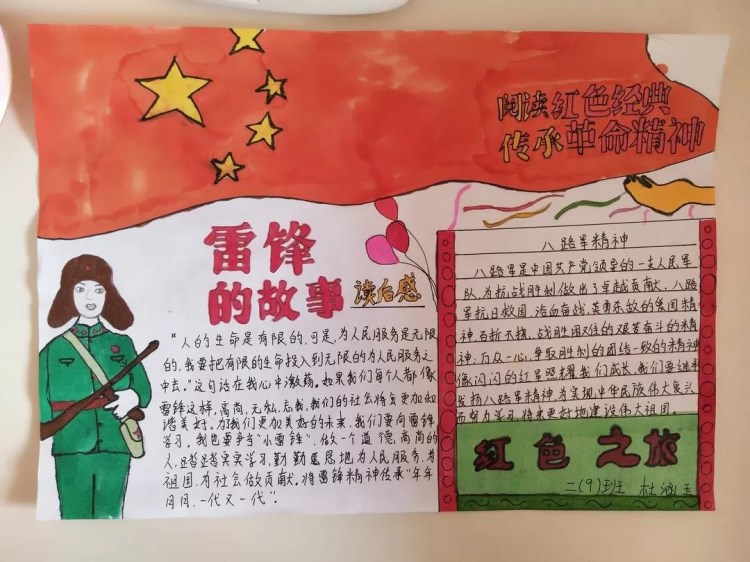 阅读红色经典
传承革命精神
雷锋
的故事 读后感
"人的生命是有限的,可是,为人民服务是无限
的,我要把有限的生命投入到无限的为人民服务之
中去。"这句话在我心中激荡。如果我们每个人都像
雷锋这样,高尚,无私,忘我,我们的社会将会更加和
谐美好。为我们更加美好的未来,我们要向雷锋
学习。我也要争当"小雷锋",做一个道德高尚的
人,踏踏实实学习,勤勤恳恳地为人民服务,为
祖国,为社会做贡献。将雷锋精神传承"年年
月月,一代又一代"。
八路军精神
八路军是中国共产党领导的一支人民军
队,为抗战胜利做出了卓越贡献,八路
军抗日救国,浴血奋战,英勇杀敌的爱国精
神,百折不挠,战胜困难的艰苦奋斗的精
神,万众一心,争取胜利的团结一致的精神
像闪闪的红星照耀我们成长,我们要继承
发扬八路军精神,为实现中华民族伟大复兴
而努力学习,将来更好地建设伟大祖国。
红色之旅
二(9)班 杜涵玉